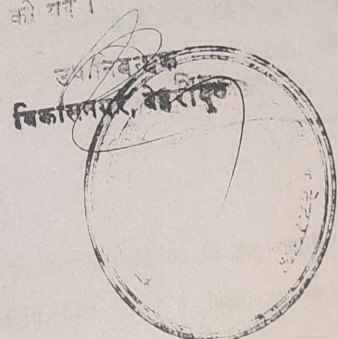 की गई ।
उप निबन्धक
विकासनगर, देहरादून